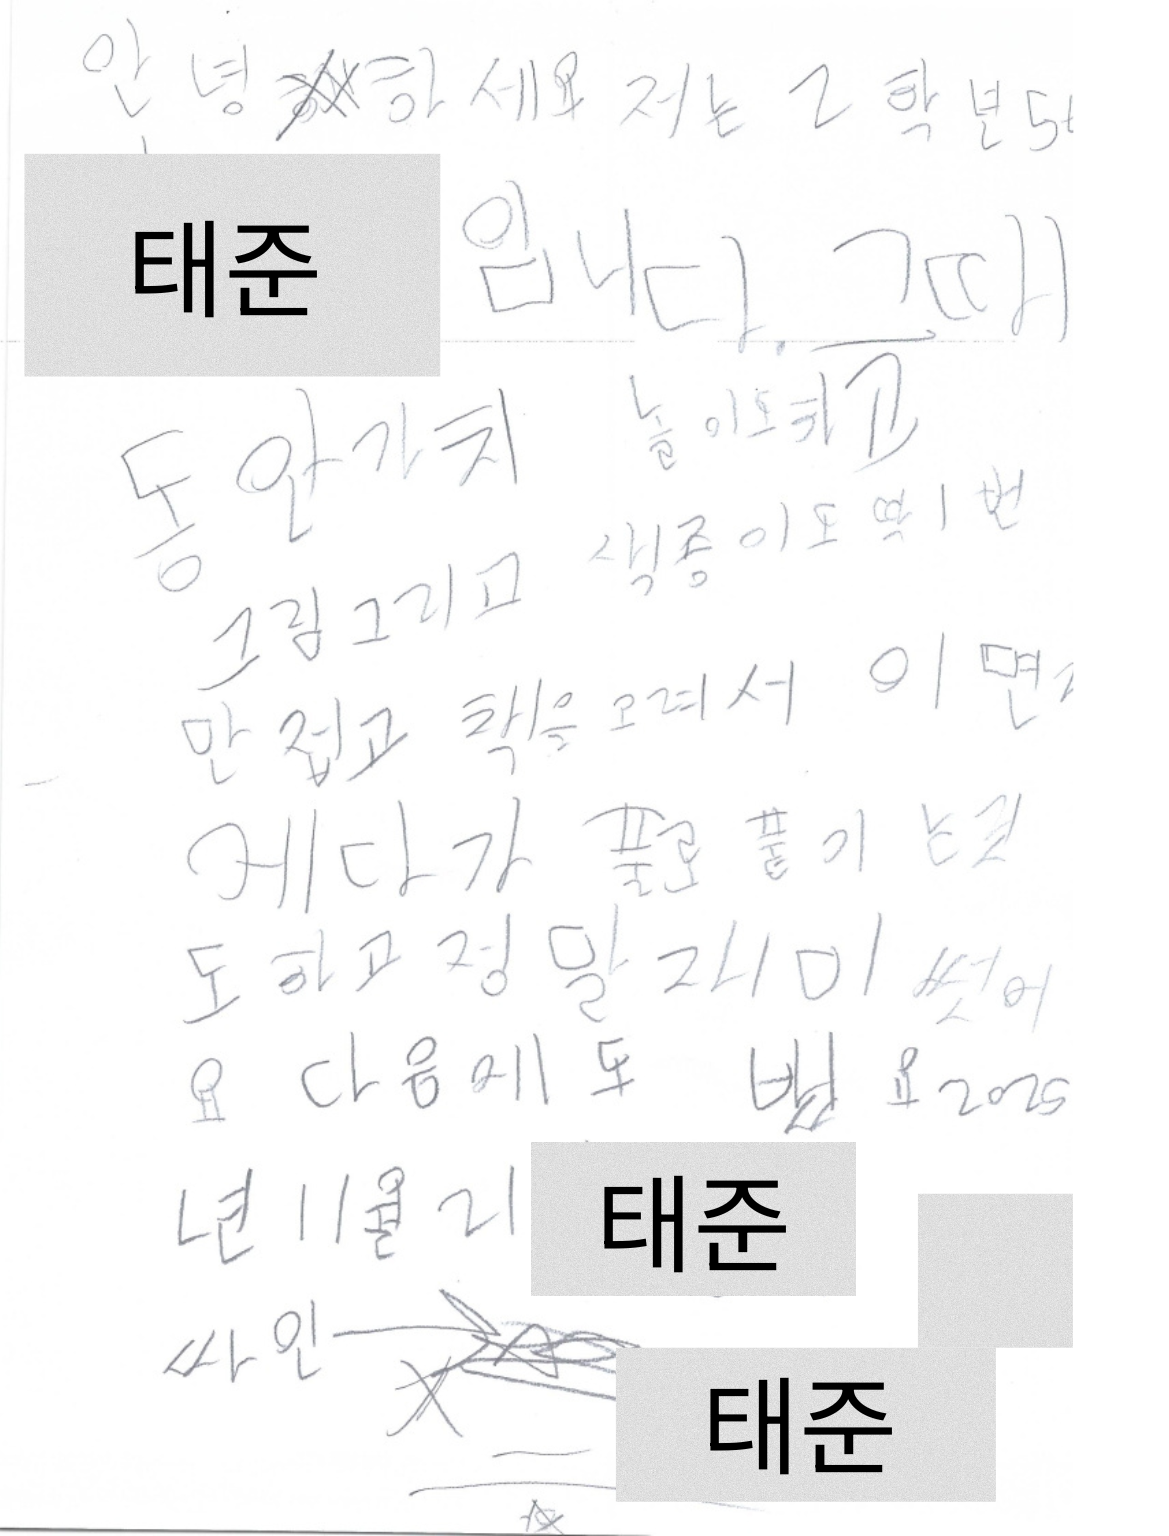 안녕하세요 저는 2학년 5
태준 입니다. 그때
동안가치 놀이도하고
그림그리고 색종이도 딱 1번
만 접고 책을 오려서 이 면
에다가 풀로 풀기 는것
도 하고 정말 재미썻어
요 다음에도 뵙요 2025
년 11월 21 태준
싸인
태준